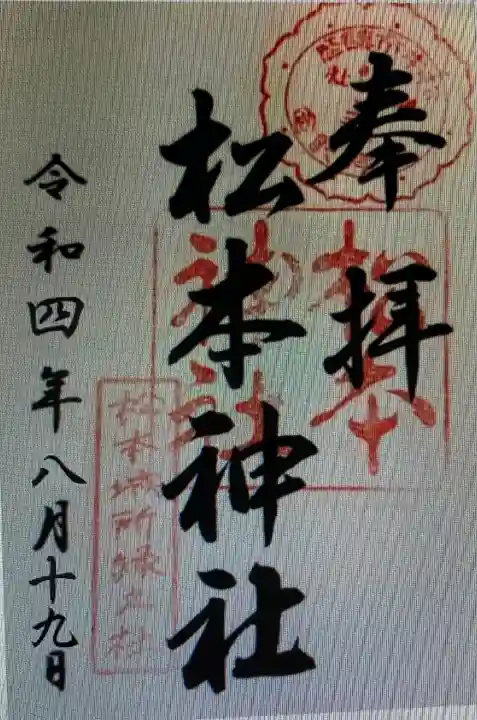 奉拝
松本神社
令和四年八月十九日
松本
神社
松本城所縁之社